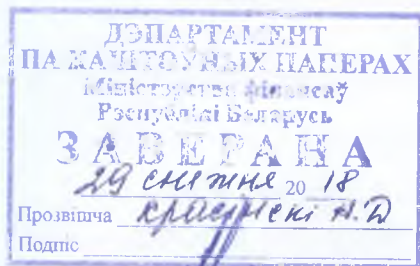 ДЭПАРТАМЕНТ
ПА КАШТОЎНЫХ ПАПЕРАХ
Міністэрства фінансаў
Рэспублікі Беларусь
ЗАВЕРАНА
29 снежня 20 18
Прозвішча
Подпіс